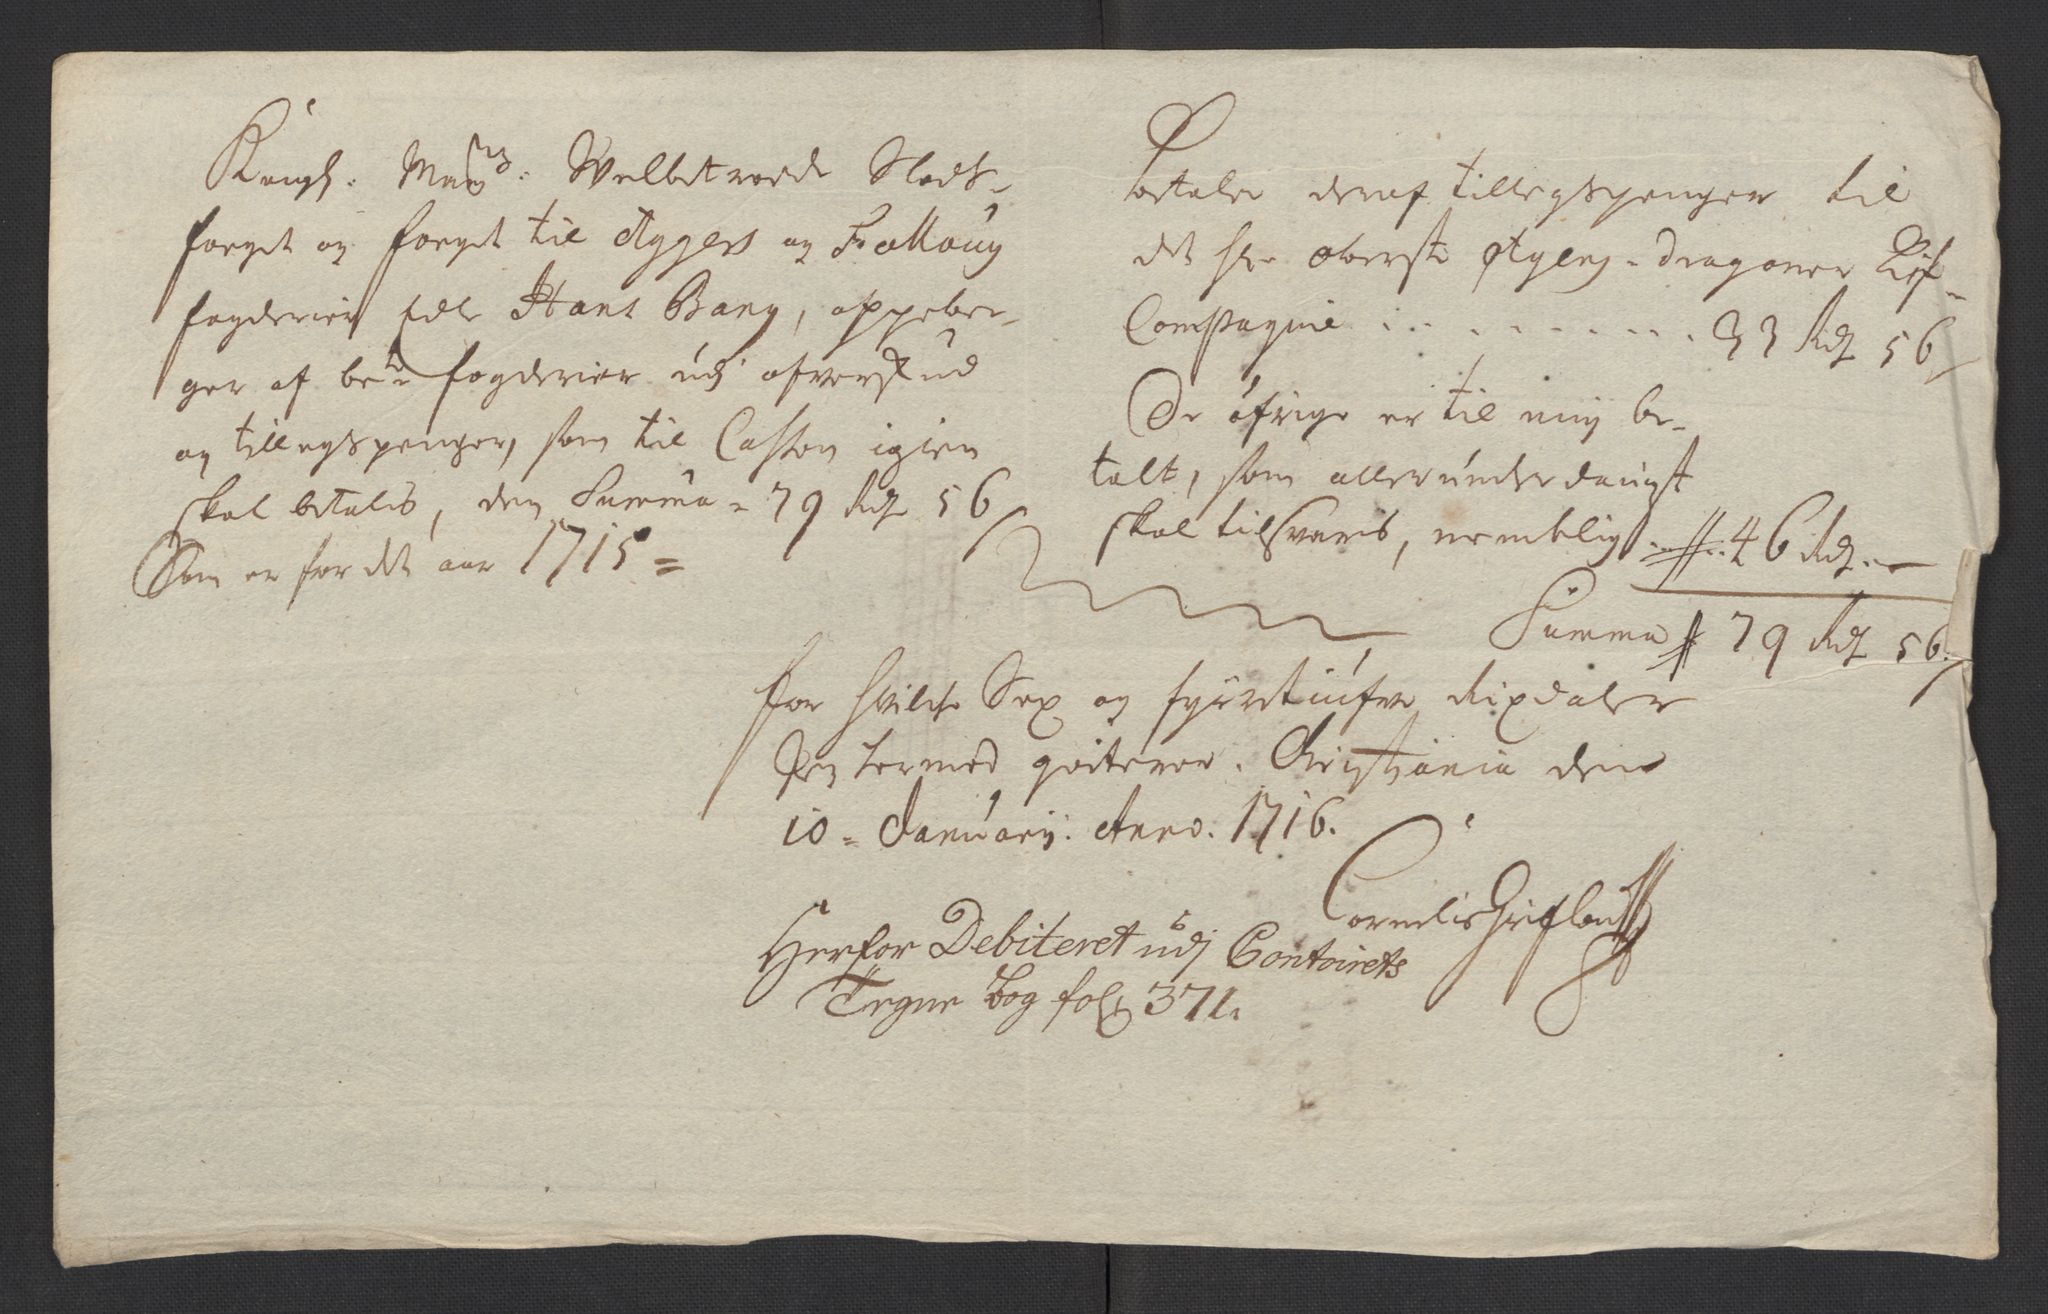 Kongl. May.ts Velbetroede Slods-
foeget og foeget til Aggers og Folloug
fogderier Edle Hans Bang, oppeber-
ger af be.te fogderier udj ofverskud
og tillegspenger, som til Cassen igien
skal betalis, den Summa = 79 Rdr 56
Som er for det aar 1715 =
betaler deraf tillegspenger til
det Hr. oberste dragoner Lif-
Compagnie . . . . . . . . . . 33 Rdr 56
De öfrige er til mig be-
talt, som allerunderdanigst
skal tilsvaris, nemblig . . 46 Rdr. —
Summa 79 Rdr 56.
for hvilche Sex og fyrretiufve Rixdaler
hermed qviterer. Christiania den
10 = January: Anno. 1716.
Cornelis
Herfor Debiteret udj Contoirets
Tegne bog fol. 371.